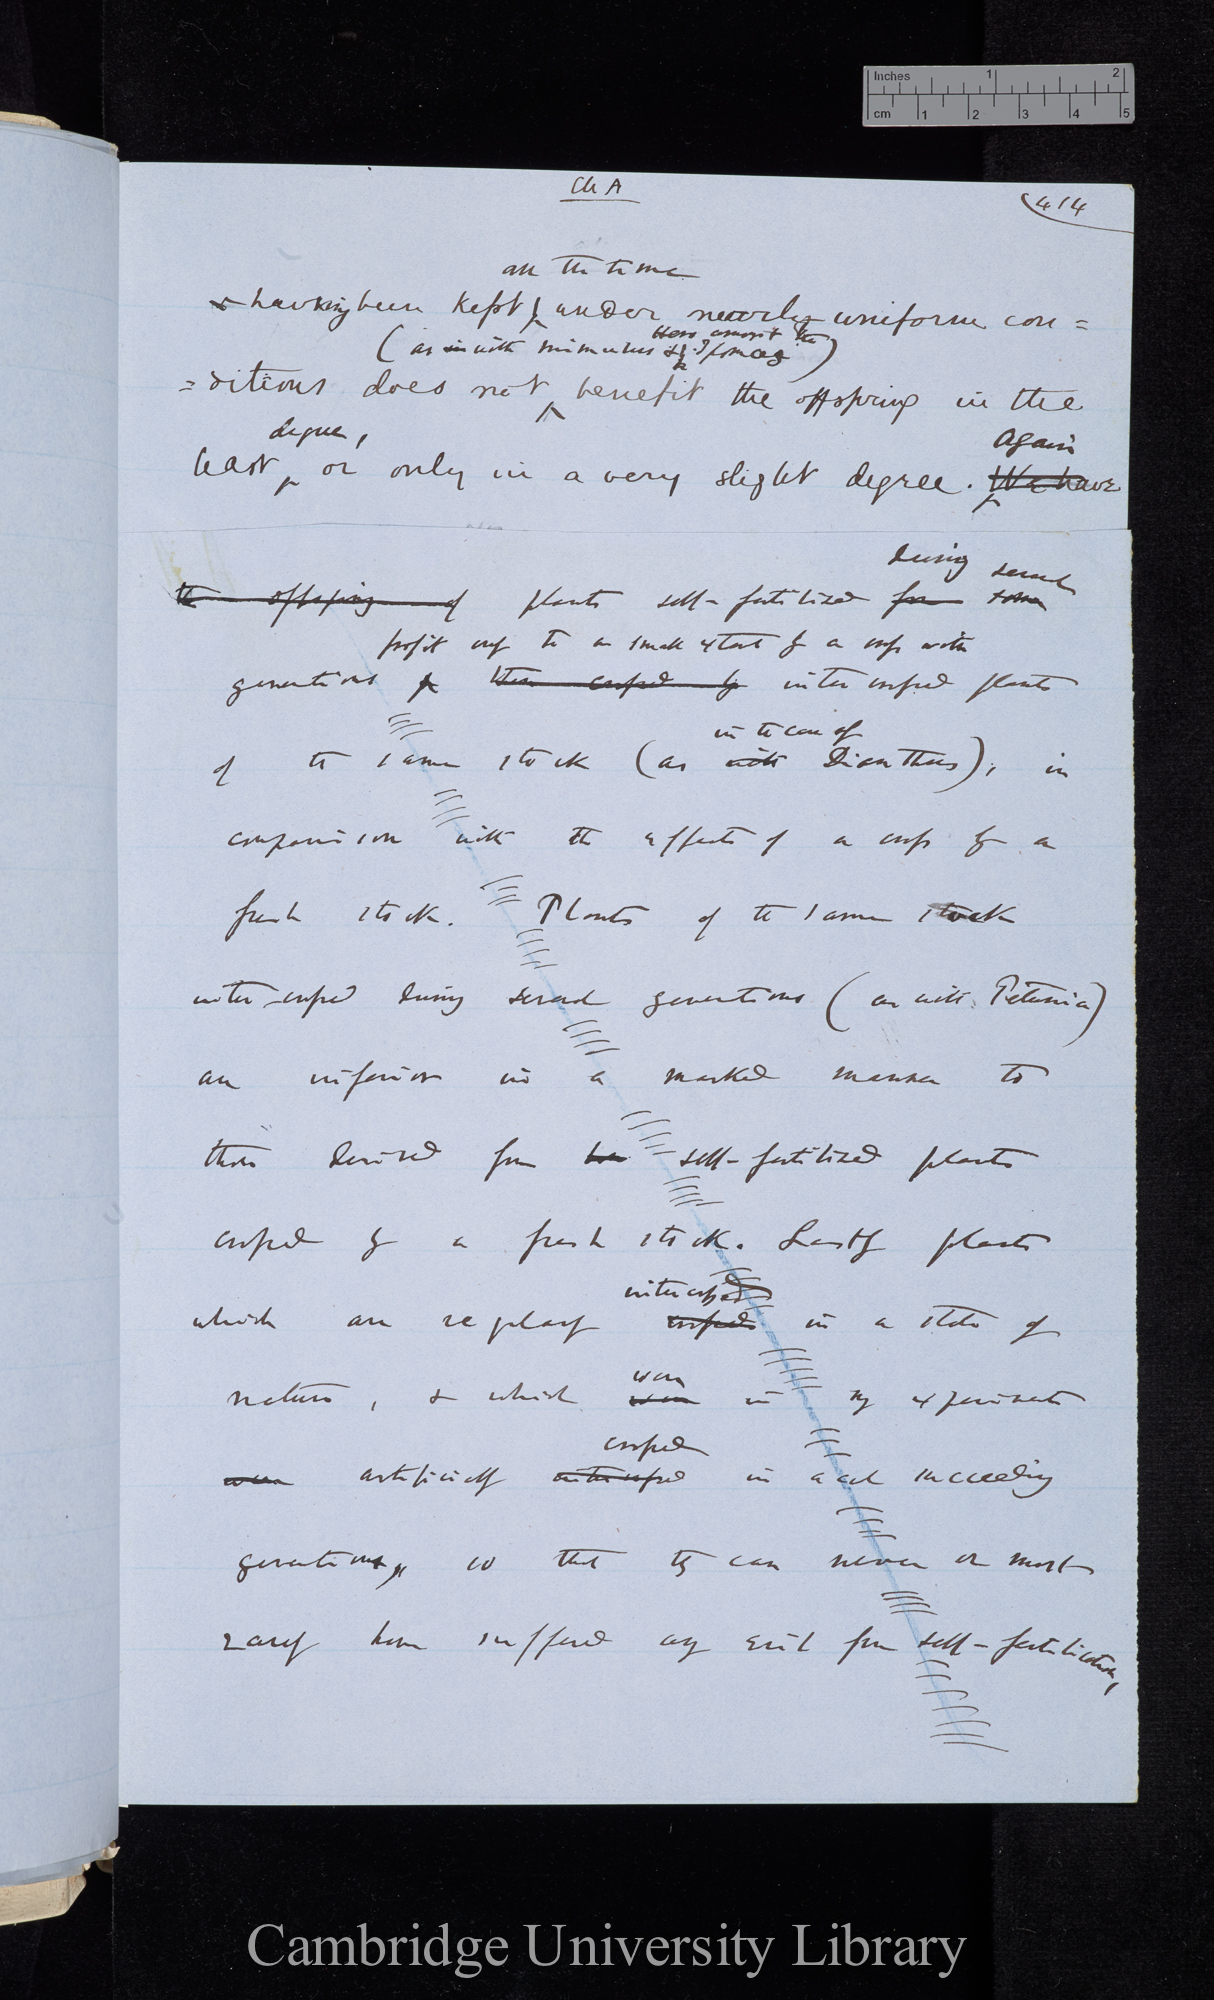 Inches 1 2
cm 1 2 3 4 5
Ch A
414
all the time
& having been kept under nearly uniform con=
(as with mimulus & Ipomœa)
=ditions does not benefit the offspring in the
degree, Again
least or only in a very slight degree. We have
during several
the offspring of plants self-fertilised from some
profit only to a small extent by a cross with
generations when crossed by intercrossed plants
in the case of
of the same stock (as with Dianthus), in
comparison with the effects of a cross by a
fresh stock. Plants of the same stock
inter-crossed during several generations (as with Petunia)
are inferior in a marked manner to
those derived from self-fertilised plants
crossed by a fresh stock. Lastly plants
intercrossed
which are regularly crossed in a state of
nature, & which were in my experiments
crossed
were artificially intercrossed in each succeeding
generation, so that they can never or most
rarely have suffered any evil from self-fertilisation,
Cambridge University Library